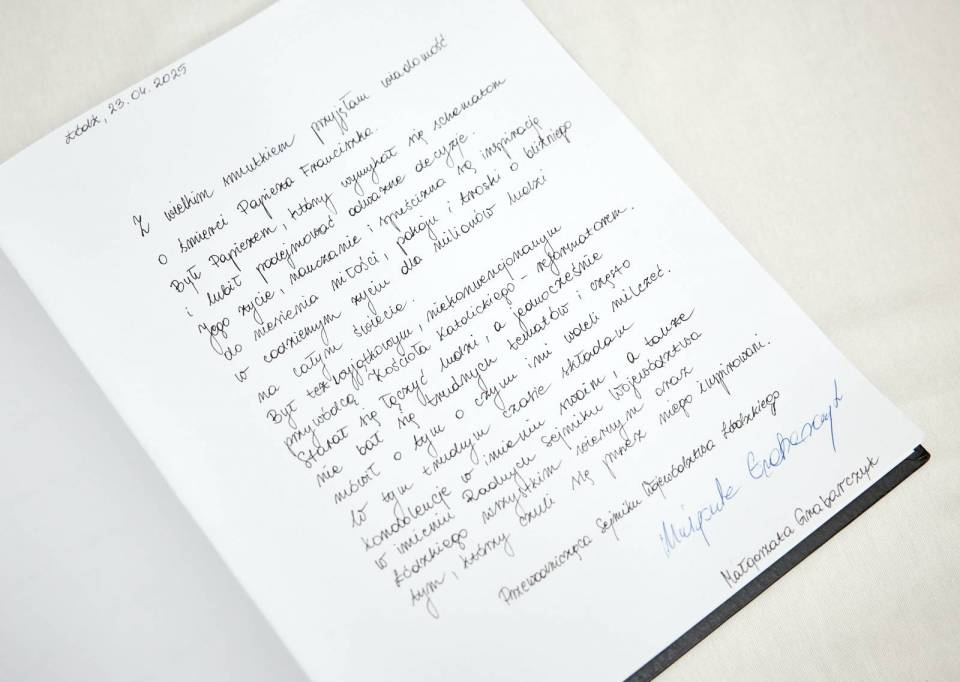 Łódź, 23.04.2025
Z wielkim smutkiem przyjęłam wiadomość
o śmierci Papieża Franciszka.
Był Papieżem, który wymykał się schematom
i lubił podejmować odważne decyzje.
Jego życie, nauczanie i spuścizna są inspiracją
do niesienia miłości, pokoju i troski o bliźniego
w codziennym życiu dla milionów ludzi
na całym świecie.
Był też wyjątkowym, niekonwencjonalnym
przywódcą Kościoła Katolickiego - reformatorem.
Starał się łączyć ludzi, a jednocześnie
nie bał się trudnych tematów i często
mówił o tym, o czym inni woleli milczeć.
W tym trudnym czasie składam
kondolencje w imieniu swoim, a także
w imieniu Radnych Sejmiku Województwa
Łódzkiego wszystkim wiernym oraz
tym, którzy czuli się przez niego inspirowani.
Przewodnicząca Sejmiku Województwa Łódzkiego
Małgorzata Grabarczyk
Małgorzata Grabarczyk